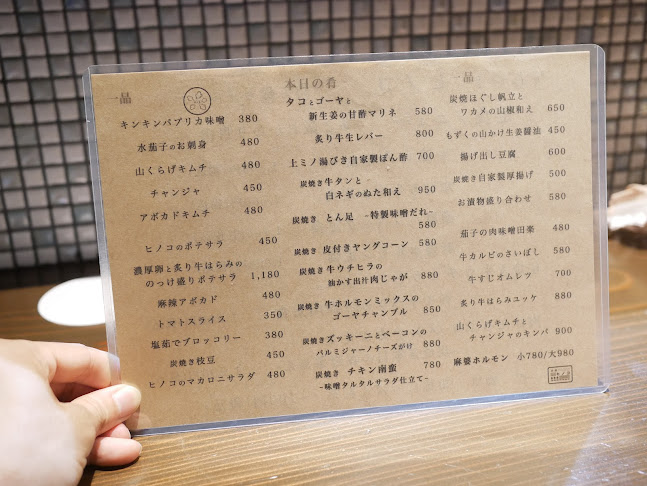 一品
キンキンパプリカ味噌 380
水茄子のお刺身 480
山くらげキムチ 480
チャンジャ 450
アボカドキムチ 480
ヒノコのポテサラ 450
濃厚卵と炙り牛はらみの
のっけ盛りポテサラ 1,180
麻辣アボカド 480
トマトスライス 350
塩茹でブロッコリー 380
炭焼き枝豆 450
ヒノコのマカロニサラダ 480
本日の肴
タコとゴーヤと
新生姜の甘酢マリネ 580
炙り牛生レバー 800
上ミノ湯びき自家製ぽん酢 700
炭焼き牛タンと
白ネギのぬた和え 950
炭焼き とん足 ~特製味噌だれ~
580
炭焼き 皮付きヤングコーン 580
炭焼き牛ウチヒラの
油かす出汁肉じゃが 880
炭焼き 牛ホルモンミックスの
ゴーヤチャンプル 850
炭焼きズッキーニとベーコンの
パルミジャーノチーズがけ 880
炭焼き チキン南蛮 780
~味噌タルタルサラダ仕立て~
一品
炭焼ほぐし帆立と
ワカメの山椒和え 650
もずくの山かけ生姜醤油 450
揚げ出し豆腐 600
炭焼き自家製厚揚げ 500
お漬物盛り合わせ 580
茄子の肉味噌田楽 480
牛カルビのさいぼし 580
牛すじオムレツ 700
炙り牛はらみユッケ 880
山くらげキムチと
チャンジャのキンパ 900
麻婆ホルモン 小780/大980